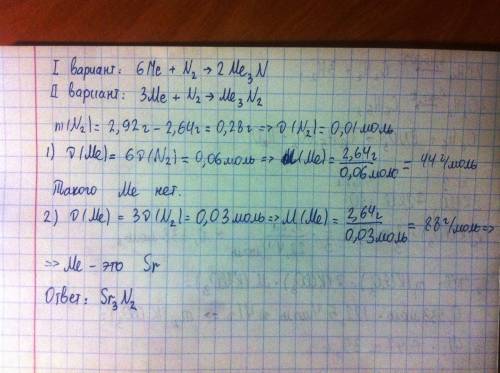 I вариант: 6Me + N₂ → 2Me₃N
II вариант: 3Me + N₂ → Me₃N₂
m(N₂) = 2,92г - 2,64г = 0,28г => ϑ(N₂) = 0,01моль
1) ϑ(Me) = 6ϑ(N₂) = 0,06моль => M(Me) = 2,64г / 0,06моль = 44г/моль
Такого Me нет.
2) ϑ(Me) = 3ϑ(N₂) = 0,03моль => M(Me) = 2,64г / 0,03моль = 88г/моль =>
=> Me - это Sr
Ответ: Sr₃N₂